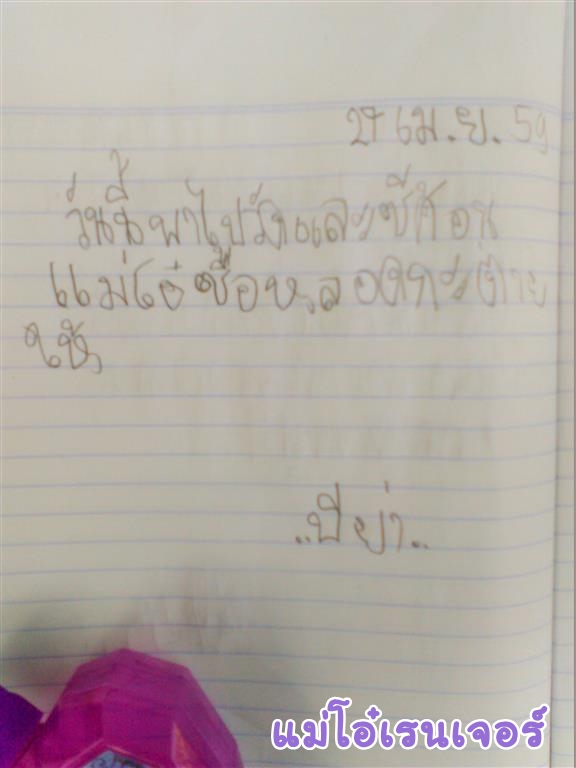 27 เม.ย. 59
วันนี้พาไปวัดและซีคอน
แม่โอ๋ซื้อหลอดกระต่าย
ให้
..ปีย่า..
แม่โอ๋เรนเจอร์